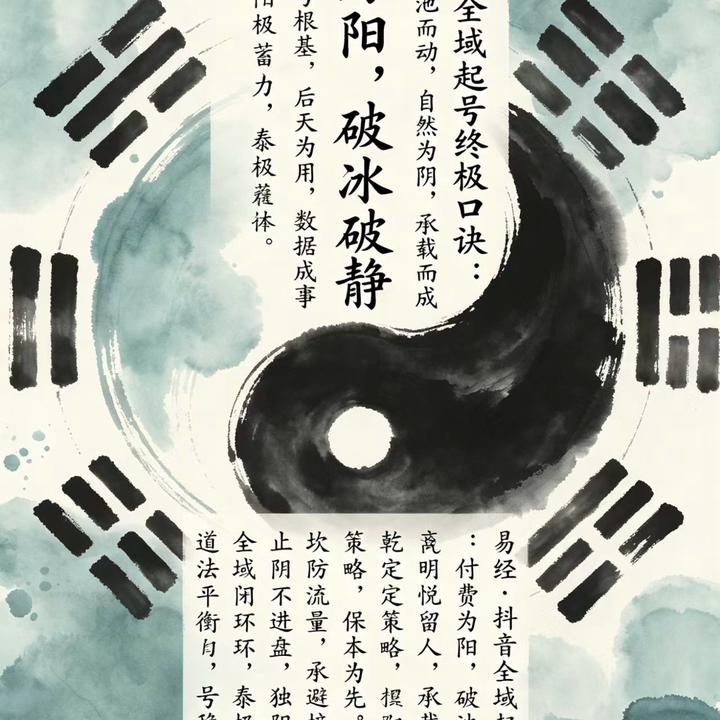 全域起号终极口诀：
而动，自然为阴，承载而成
阳，破冰破静
根基，后天为用，数据成事
阳极蓄力，泰极体。
易经·抖音全域起
：付费为阳，破冰
离明悦留人，承载
乾定定策略，
策略，保本为先。
坎防流量，承避
止阴不进盘，独阳
全域闭环环，泰极
道法平衡，号稳